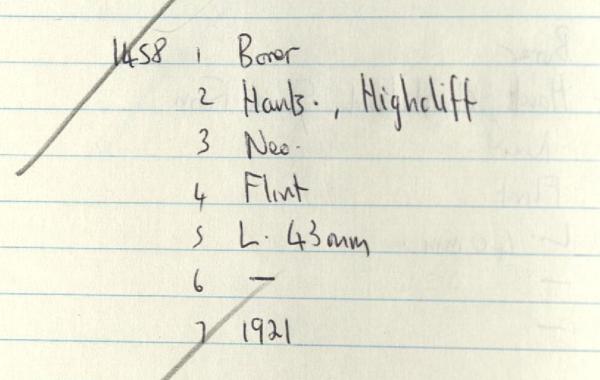 1458 1 Borer
2 Hants., Highcliff
3 Neo.
4 Flint
5 L. 43mm
6 —
7 1921